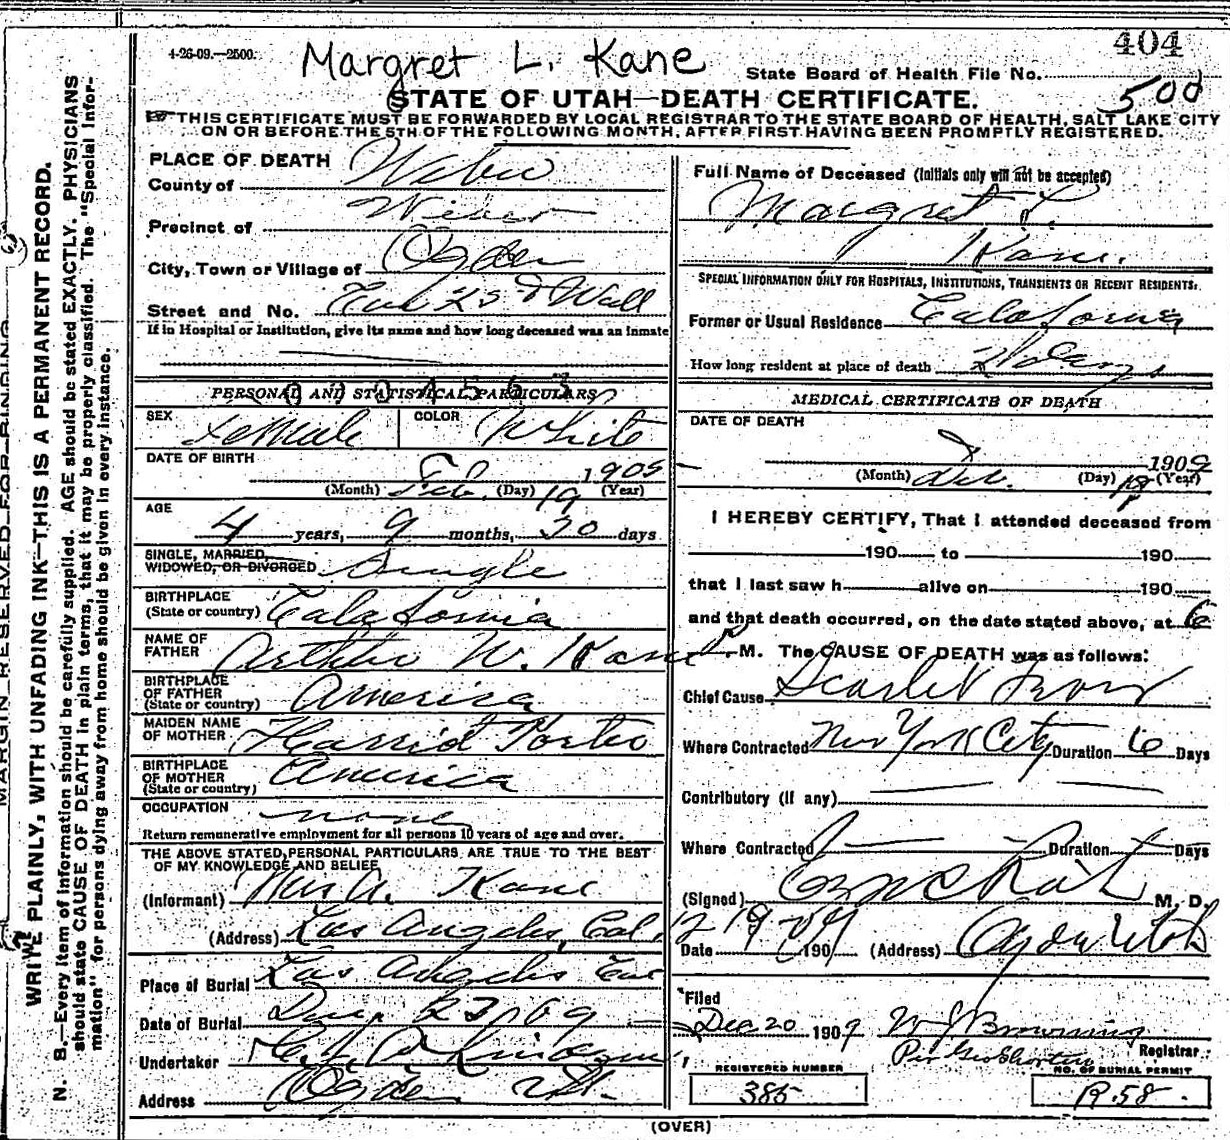 404
4-26-09.—2500.
Margret L. Kane
State Board of Health File No.
500
STATE OF UTAH—DEATH CERTIFICATE.
THIS CERTIFICATE MUST BE FORWARDED BY LOCAL REGISTRAR TO THE STATE BOARD OF HEALTH, SALT LAKE CITY
ON OR BEFORE THE 5TH OF THE FOLLOWING MONTH, AFTER FIRST HAVING BEEN PROMPTLY REGISTERED.
MARGIN RESERVED FOR BINDING
WRITE PLAINLY, WITH UNFADING INK—THIS IS A PERMANENT RECORD.
N. B.—Every item of information should be carefully supplied. AGE should be stated EXACTLY. PHYSICIANS
should state CAUSE OF DEATH in plain terms, that it may be properly classified. The "Special Infor-
mation" for persons dying away from home should be given in every instance.
PLACE OF DEATH
County of Weber
Precinct of Weber
City, Town or Village of Ogden
Street and No. 25th & Wall
If in Hospital or Institution, give its name and how long deceased was an inmate
PERSONAL AND STATISTICAL PARTICULARS
SEX Female COLOR White
DATE OF BIRTH
Feb. 19 1905
(Month) (Day) (Year)
AGE
4 years, 9 months, 30 days
SINGLE, MARRIED,
WIDOWED, OR DIVORCED Single
BIRTHPLACE
(State or country) California
NAME OF
FATHER Arthur W. Kane
BIRTHPLACE
OF FATHER
(State or country) America
MAIDEN NAME
OF MOTHER Harriet Porter
BIRTHPLACE
OF MOTHER
(State or country) America
OCCUPATION none
Return remunerative employment for all persons 10 years of age and over.
THE ABOVE STATED PERSONAL PARTICULARS ARE TRUE TO THE BEST
OF MY KNOWLEDGE AND BELIEF
(Informant) Mrs A. Kane
(Address) Los Angeles, Cal.
Place of Burial Los Angeles Cal
Date of Burial Dec. 23, 09
Undertaker
Address Ogden Ut.
Full Name of Deceased (Initials only will not be accepted)
Margret L.
Kane.
SPECIAL INFORMATION ONLY FOR HOSPITALS, INSTITUTIONS, TRANSIENTS OR RECENT RESIDENTS.
Former or Usual Residence California
How long resident at place of death days
MEDICAL CERTIFICATE OF DEATH
DATE OF DEATH
1909
(Month) Dec. (Day) 18 (Year)
I HEREBY CERTIFY, That I attended deceased from
190 to 190
that I last saw h alive on 190
and that death occurred, on the date stated above, at 6
P.M. The CAUSE OF DEATH was as follows:
Chief Cause Scarlet Fever
Where Contracted New York City Duration 6 Days
Contributory (if any)
Where Contracted Duration Days
(Signed) M. D.
Date 12 19 1909 (Address) Ogden Utah
Filed
Dec 20 1909 W J Browning
Per Geo Shorten Registrar
REGISTERED NUMBER
385
NO. OF BURIAL PERMIT
R.58.
(OVER)